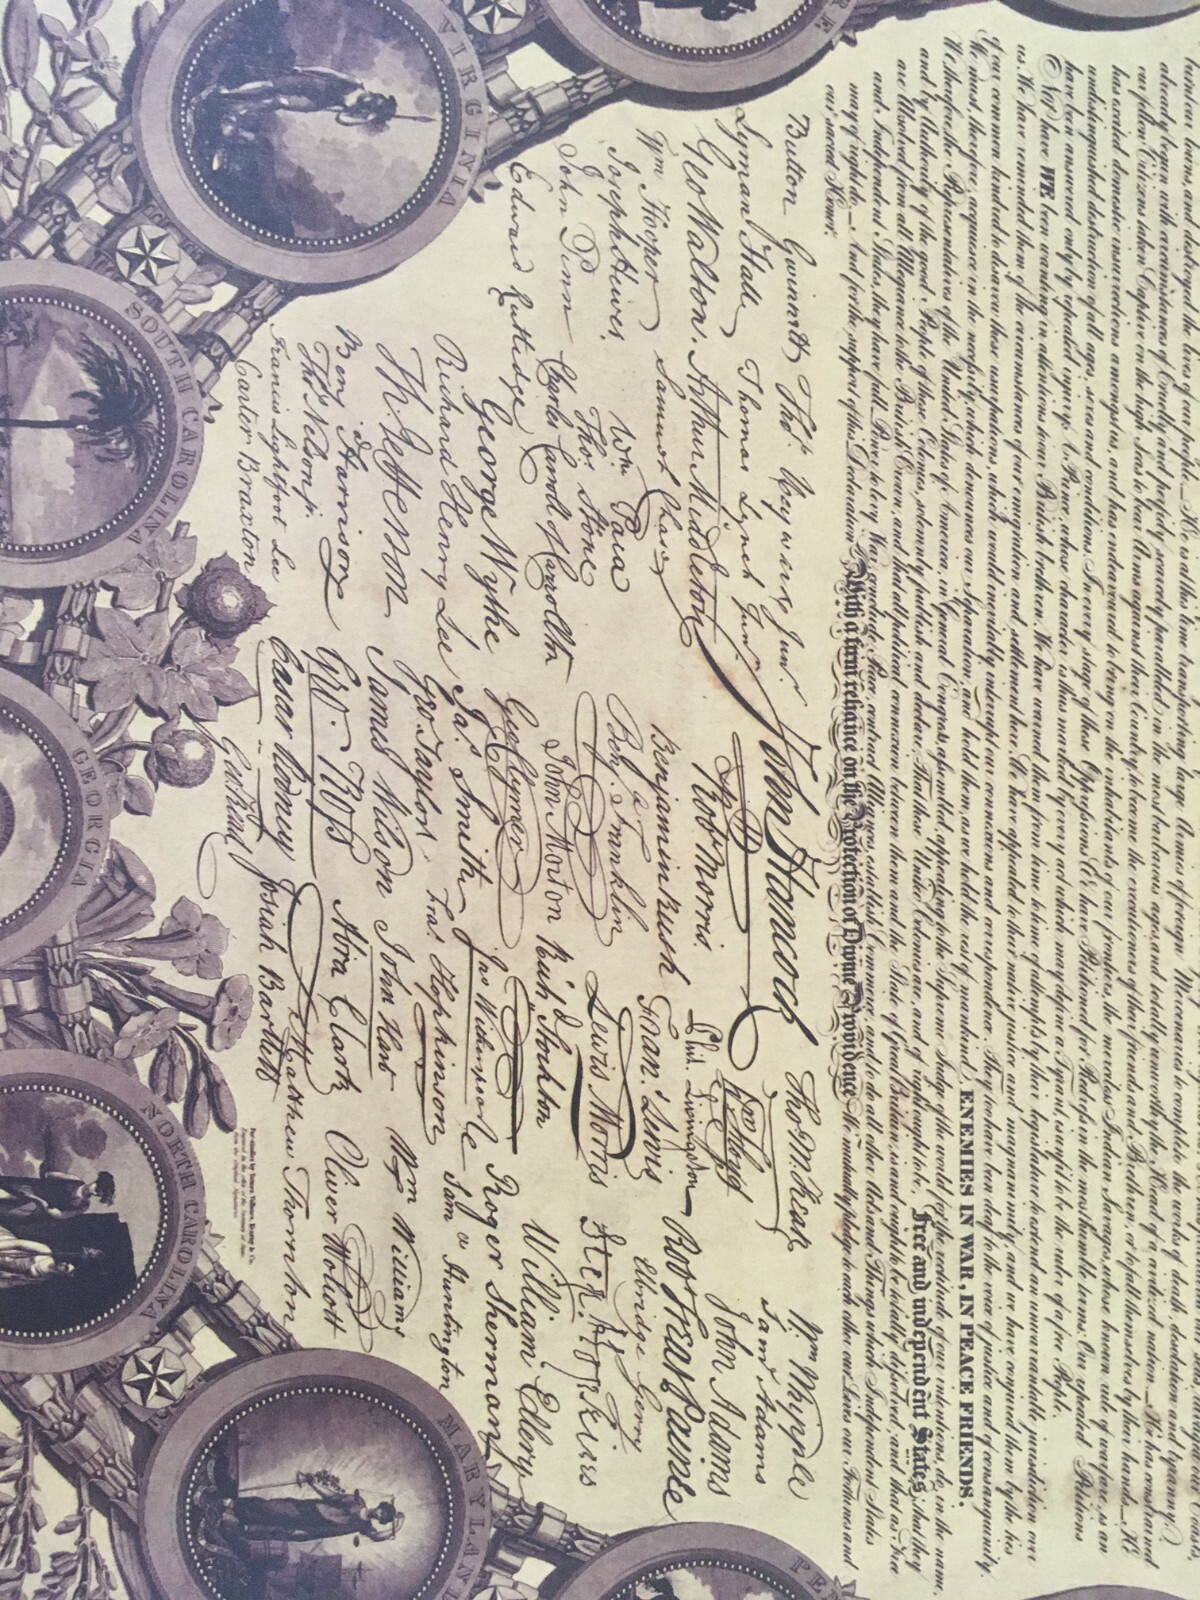 burnt our towns, and destroyed the lives of our people. — He is at this time transporting large Armies of foreign Mercenaries to compleat the works of death, desolation and tyranny,
already begun with circumstances of Cruelty and perfidy scarcely paralleled in the most barbarous ages, and totally unworthy the Head of a civilized nation. — He has constrained
our fellow Citizens taken Captive on the high Seas to bear Arms against their Country, to become the executioners of their friends and Brethren, or to fall themselves by their hands. — He
has excited domestic insurrections amongst us, and has endeavoured to bring on the inhabitants of our frontiers, the merciless Indian Savages, whose known rule of warfare, is an
undistinguished destruction of all ages, sexes and conditions. In every stage of these Oppressions We have Petitioned for Redress in the most humble terms: Our repeated Petitions
have been answered only by repeated injury. A Prince, whose character is thus marked by every act which may define a Tyrant, is unfit to be the ruler of a free People.
Nor have WE been wanting in attentions to our British brethren. We have warned them from time to time of attempts by their legislature to extend an unwarrantable jurisdiction over
us. We have reminded them of the circumstances of our emigration and settlement here. We have appealed to their native justice and magnanimity, and we have conjured them by the ties
of our common kindred to disavow these usurpations, which would inevitably interrupt our connexions and correspondence. They too have been deaf to the voice of justice and of consanguinity.
We must, therefore, acquiesce in the necessity, which denounces our Separation, and hold them, as we hold the rest of mankind, ENEMIES IN WAR, IN PEACE FRIENDS.
We therefore, the Representatives of the United States of America, in General Congress, assembled, appealing to the Supreme Judge of the world for the rectitude of our intentions, do, in the name,
and by Authority of the good People of these Colonies, solemnly publish and declare, That these United Colonies are, and of right ought to be, Free and independent States; that they
are Absolved from all Allegiance to the British Crown, and that all political connexion between them and the State of Great Britain, is and ought to be totally dissolved; and that as Free
and Independent States, they have full Power to levy War, conclude Peace, contract Alliances, establish Commerce, and to do all other Acts and Things which Independent States
may of right do. — And for the support of this Declaration, With a firm reliance on the Protection of Divine Providence, We mutually pledge to each other our Lives, our Fortunes and
our sacred Honor.
Button Gwinnett
Lyman Hall
Geo Walton.
Wm Hooper
Joseph Hewes,
John Penn
Edward Rutledge
Tho.s Heyward Junr.
Thomas Lynch Junr.
Arthur Middleton
Samuel Chase
Wm. Paca
Thos. Stone
Charles Carroll of Carrollton
George Wythe
Richard Henry Lee
Th Jefferson
Benj Harrison
Thos Nelson jr.
Francis Lightfoot Lee
Carter Braxton
John Hancock
Robt Morris.
Benjamin Rush
Benj. Franklin
John Morton
Geo Clymer
Jas. Smith
Geo. Taylor
James Wilson
Geo. Ross
Caesar Rodney
Geo Read
Tho M:Kean
Wm Floyd
Phil. Livingston
Fran. Lewis
Lewis Morris
Richd Stockton
Jno Witherspoon
Fras Hopkinson
John Hart
Abra Clark
Josiah Bartlett
Wm Whipple
Saml Adams
John Adams
Robt Treat Paine
Elbridge Gerry
Step. Hopkins
William Ellery
Roger Sherman
Saml Huntington
Wm Williams
Oliver Wolcott
Matthew Thornton
VIRGINIA
SOUTH CAROLINA
GEORGIA
NORTH CAROLINA
MARYLAND
PEN
RE